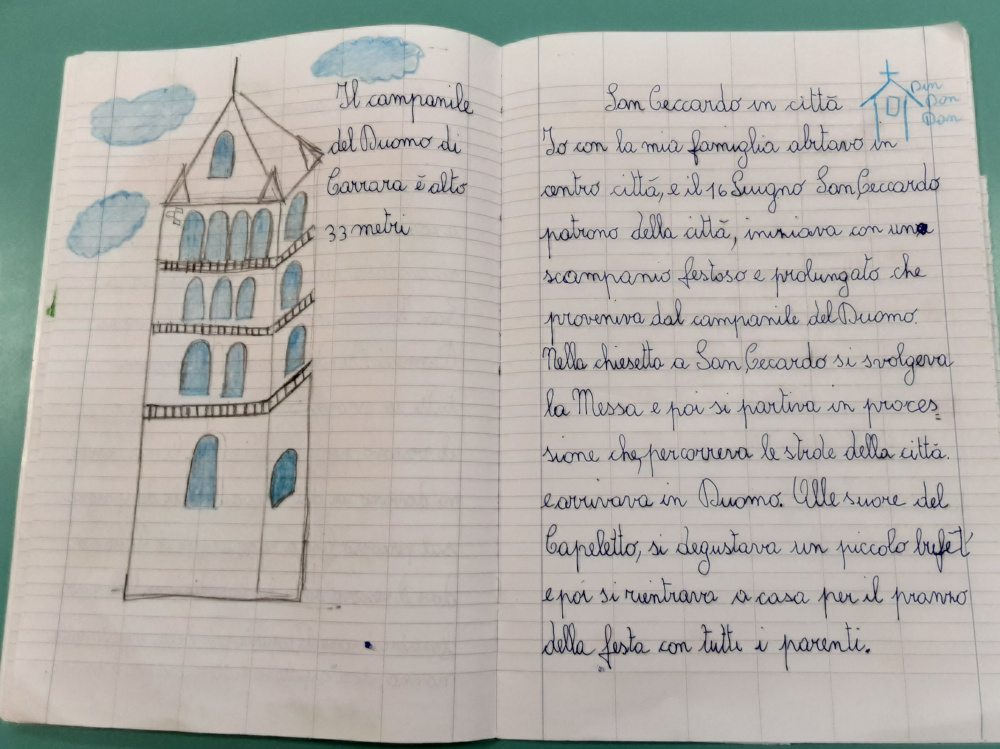 Il campanile
del Duomo di
Carrara è alto
33 metri
San Ceccardo in città
Din
Don
Dan
Io con la mia famiglia abitavo in
centro città, e il 16 Giugno San Ceccardo
patrono della città, iniziava con uno
scampanio festoso e prolungato che
proveniva dal campanile del Duomo.
Nella chiesetta a San Ceccardo si svolgeva
la Messa e poi si partiva in proces
sione che, percorreva le strade della città.
e arrivava in Duomo. Alle suore del
Capeletto, si degustava un piccolo bufet
e poi si rientrava a casa per il pranzo
della festa con tutti i parenti.